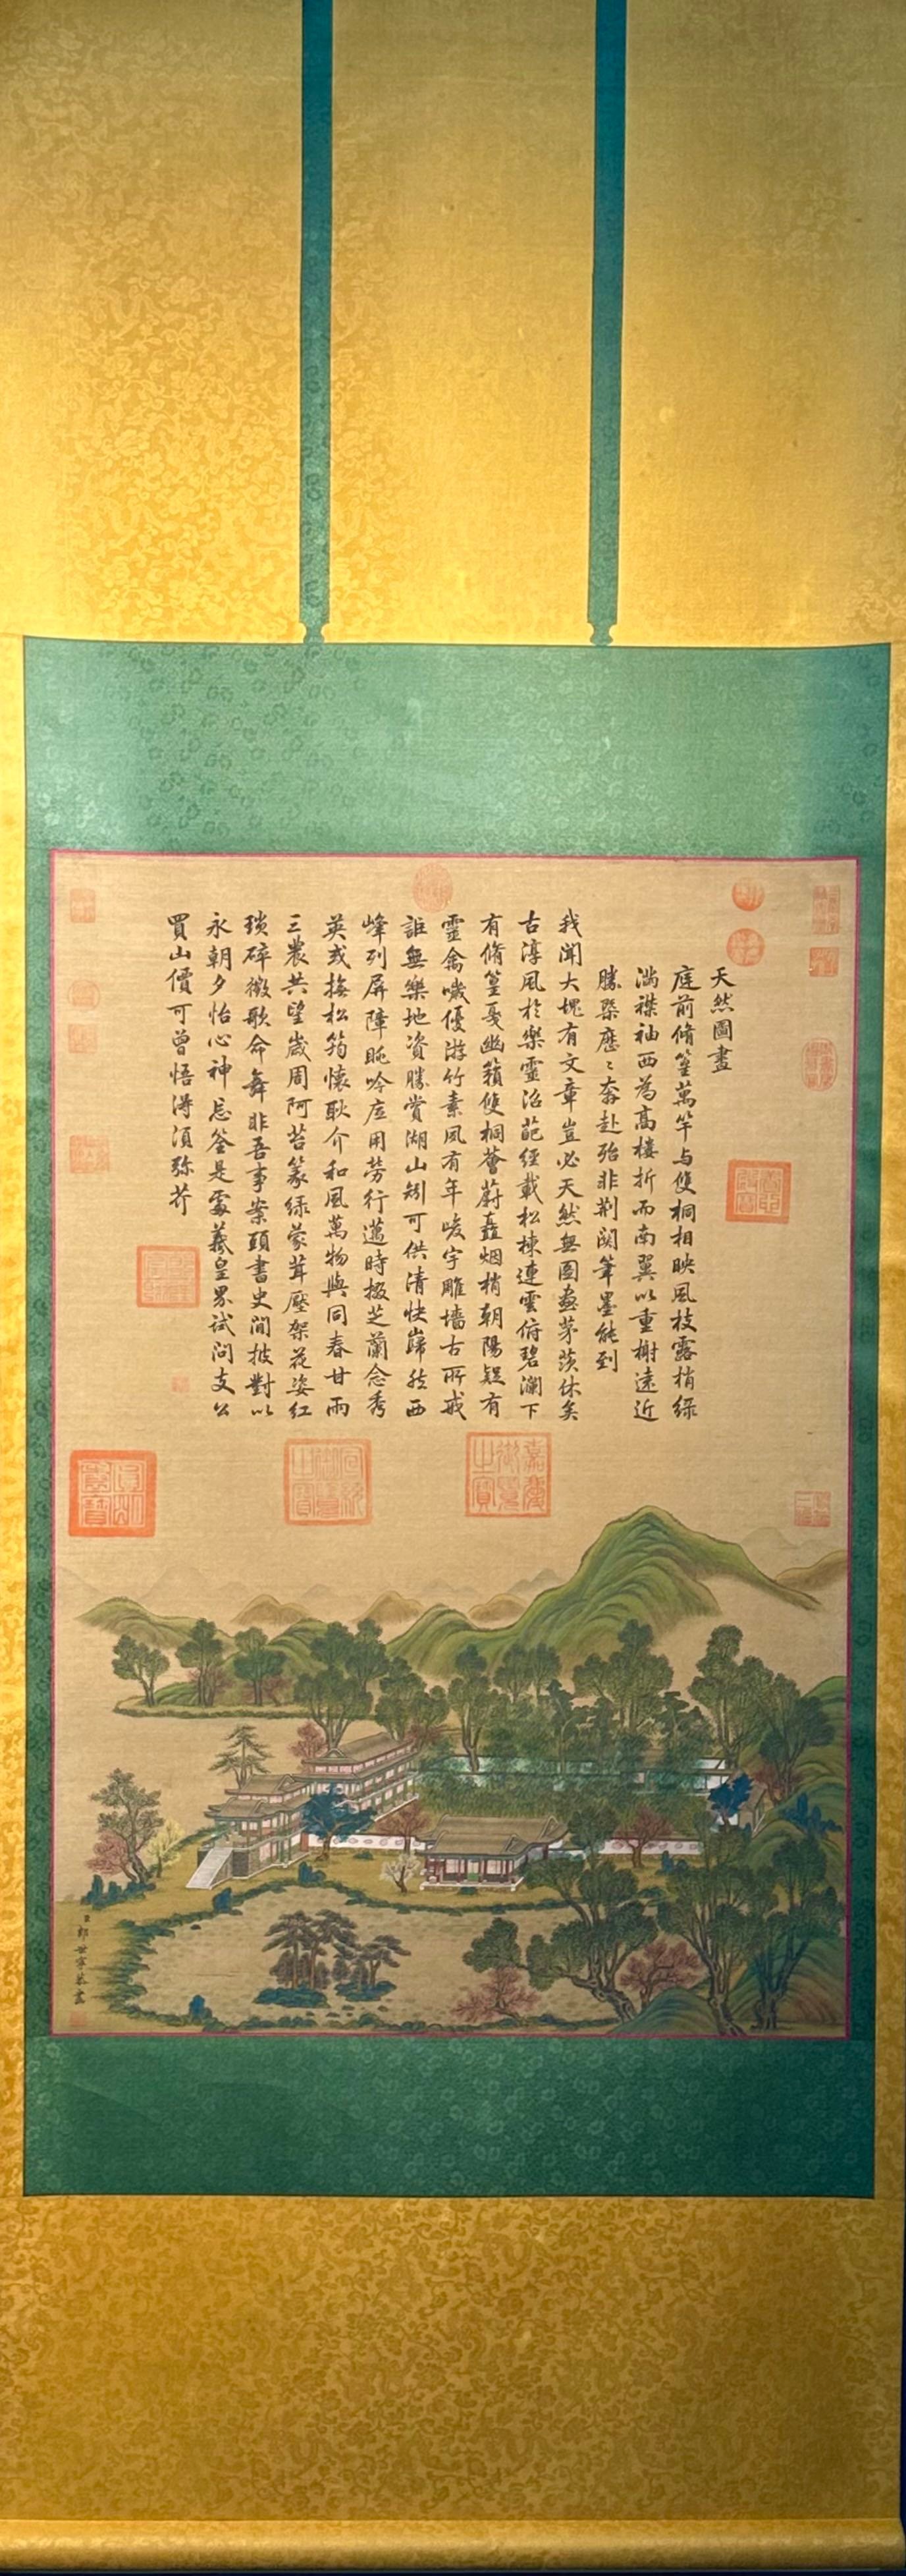 天然圖畫
庭前脩篁萬竿与雙桐相映風枝露梢綠
滿襟袖西為高樓折而南翼以重榭遠近
勝槩歷〻奔赴殆非荆関筆墨能到
我聞大塊有文章豈必天然無圖畫茅茨休矣
古淳風於樂靈沼葩經載松棟連雲俯碧瀾下
有脩篁戛幽籟雙桐薈蔚矗烟梢朝陽疑有
靈禽噦優游竹素夙有年峻宇雕墻古所戒
詎無樂地資勝賞湖山矧可供清快巋然西
峰列屏障眺吟底用勞行邁時掇芝蘭念秀
英或撫松筠懷耿介和風萬物與同春甘雨
三農共望歲周阿苔篆綠蒙茸壓架花姿紅
瑣碎徵歌命舞非吾事案頭書史閒披對以
永朝夕怡心神忘筌是處羲皇界試問支公
買山價可曾悟得須弥芥
嘉慶御覽之寶
宣統御覽之寶
臣郎世寧恭畫